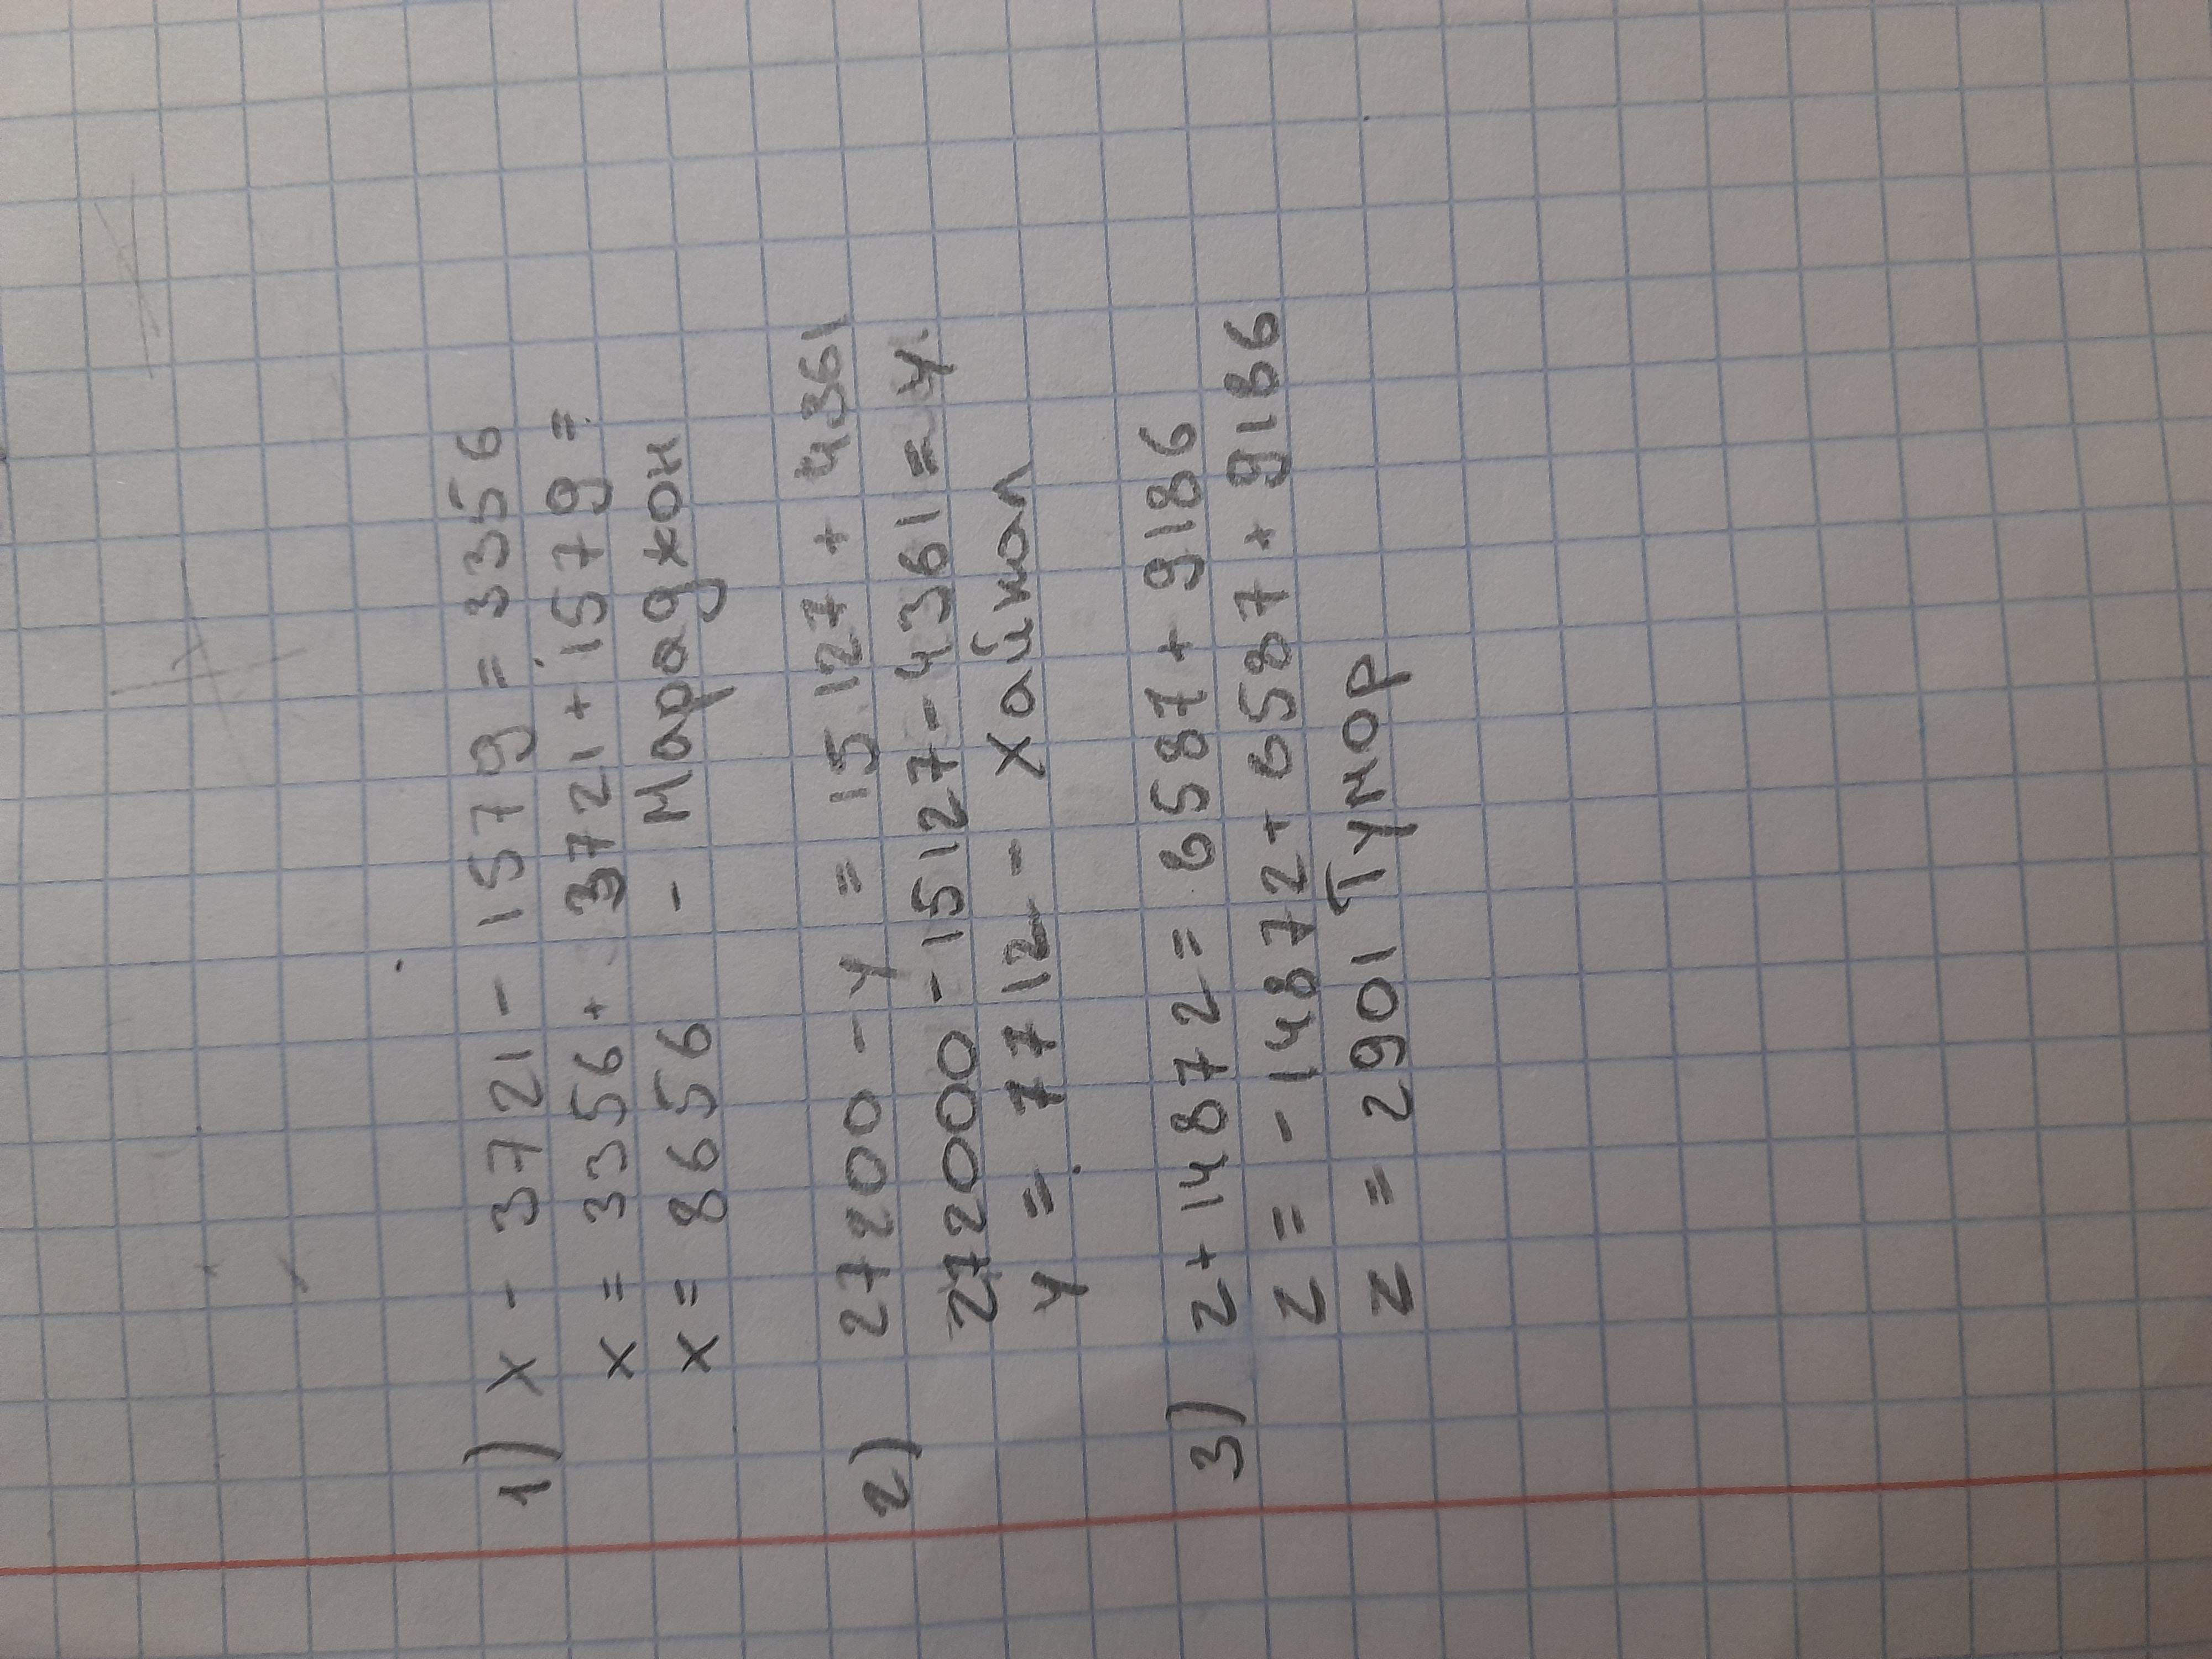 1) x - 3721 - 1579 = 3356
x = 3356 + 3721 + 1579 =
x = 8656 - Марадхон
2) 27200 - y = 15127 + 4361
272000 - 15127 - 4361 = y
y = 7712 - Хайкал
3) z + 14872 = 6587 + 9186
z = - 14872 + 6587 + 9186
z = 2901 Тумор